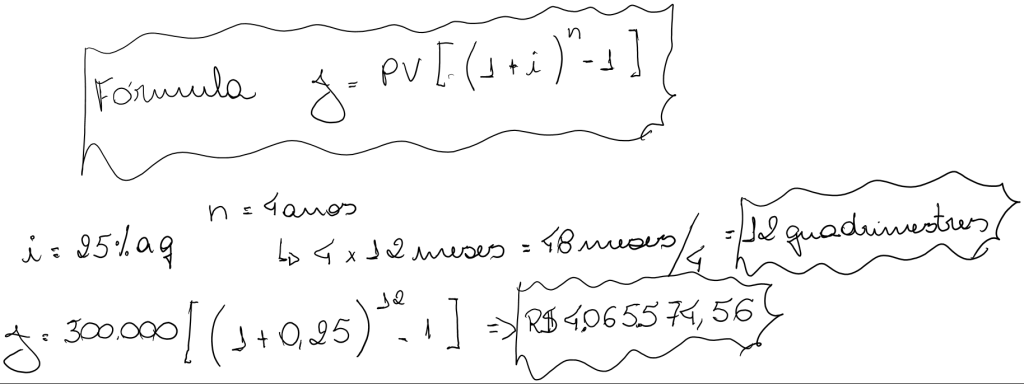 Fórmula J = PV [(1 + i)^n - 1]
n = 4 anos
i = 25% aq ↳ 4 x 12 meses = 48 meses / 4 = 12 quadrimestres
J = 300.000 [(1 + 0,25)^12 - 1] => R$ 4.065.574,56